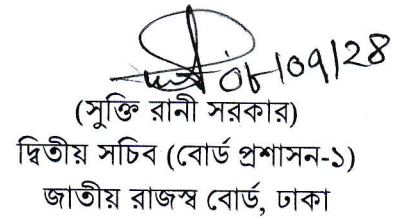 ০৮/০৭/২৪
(সুক্তি রানী সরকার)
দ্বিতীয় সচিব (বোর্ড প্রশাসন-১)
জাতীয় রাজস্ব বোর্ড, ঢাকা